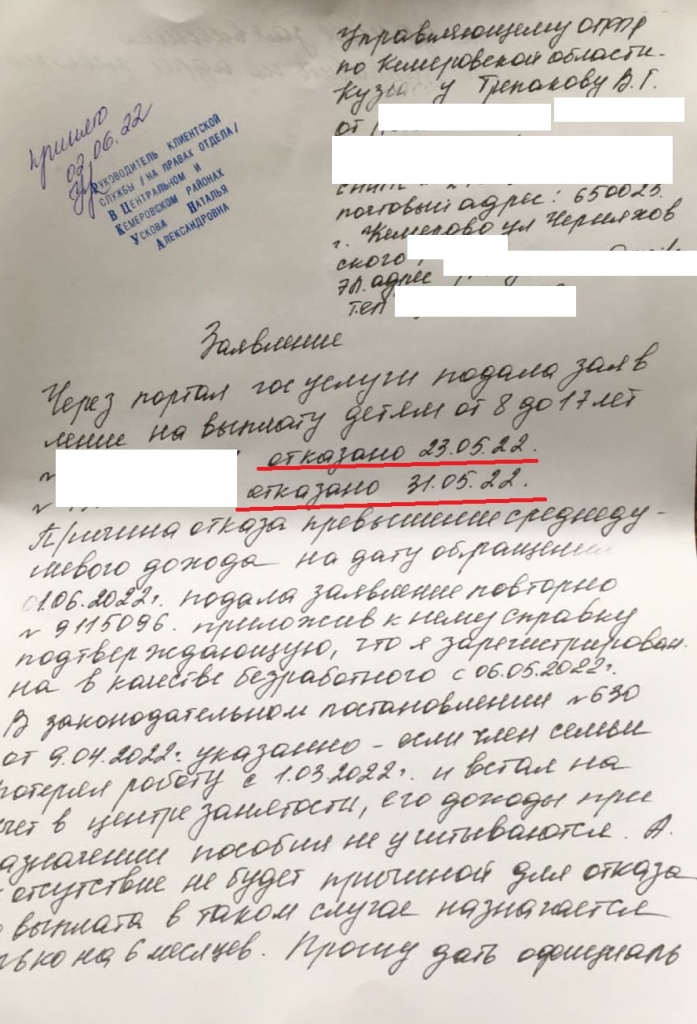 Управляющему ОПФР
по Кемеровской области-
Кузбассу Трепакову В.Г.
от
почтовый адрес: 650025.
г. Кемерово ул Черняхов
ского
эл. адрес
тел
пришело
02.06.22
Руководитель клиентской
службы /на правах отдела/
в Центральном и
Кемеровском районах
Ускова Наталья
Александровна
Заявление
Через портал гос услуги подала заяв
ление на выплату детям от 8 до 17 лет
отказано 23.05.22.
отказано 31.05.22.
Причина отказа превышение среднеду-
шевого дохода на дату обращения
01.06.2022г. подала заявление повторно
№ 9115096. приложив к нему справку
подтверждающую, что я зарегистрирован.
на в качестве безработного с 06.05.2022г.
В законодательном постановлении №630
от 9.04.2022г. указанно - если член семьи
потерял работу с 1.03.2022г. и встал на
учет в центре занятости, его доходы при
азначении пособия не учитываются. А.
отсутствие не будет причиной для отказа
выплата в таком случае назначается
лько на 6 месяцев. Прошу дать официаль